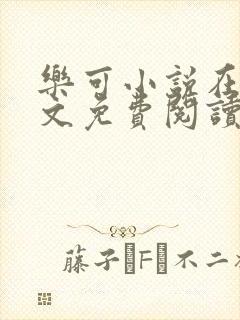 樂可小說在
文免費閱讀
藤子·F·不二